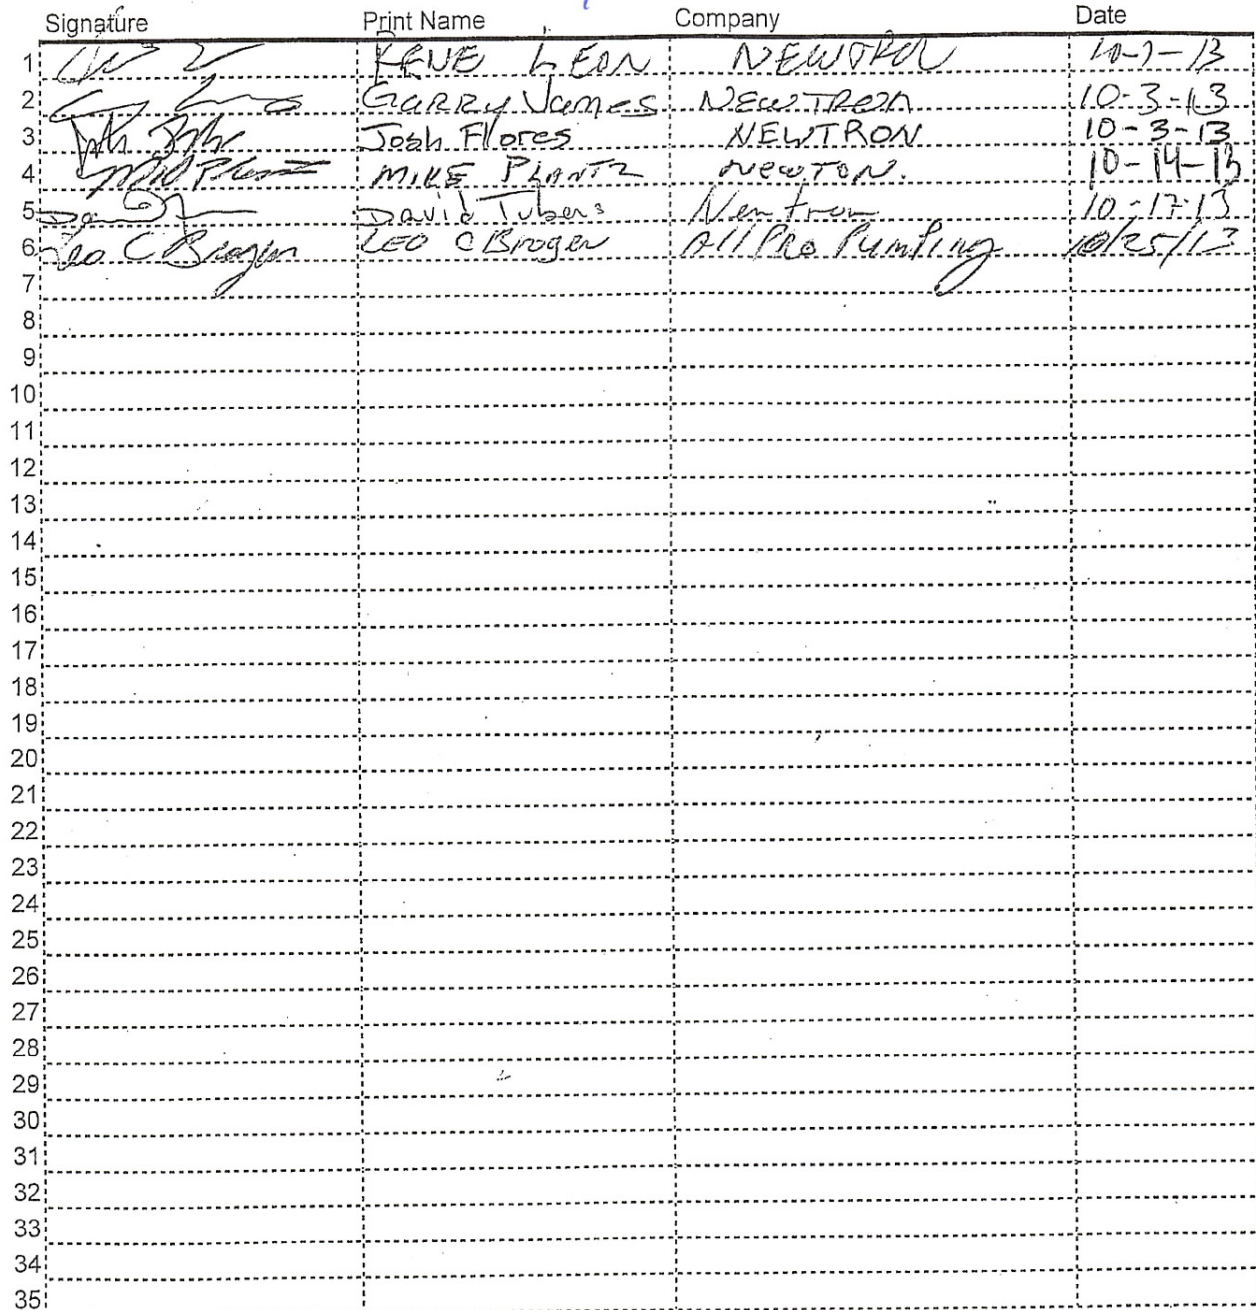 Signature Print Name Company Date
1 RENE LEON NEWTRON 10-7-13
2 GARRY James NEWTRON 10-3-13
3 Josh Flores NEWTRON 10-3-13
4 MIKE PLANTZ NEWTON. 10-14-13
5 David Tubens Newtron 10-17-13
6 Leo C Brogen LEO C Brogen All Pro Pumping 10/25/13
7
8
9
10
11
12
13
14
15
16
17
18
19
20
21
22
23
24
25
26
27
28
29
30
31
32
33
34
35